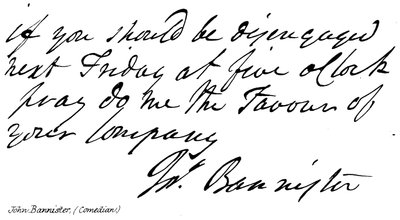 if you should be disengaged
next Friday at five oClock
pray do me the Favour of
your Company
Jno. Bannister
John Bannister, (Comedian)